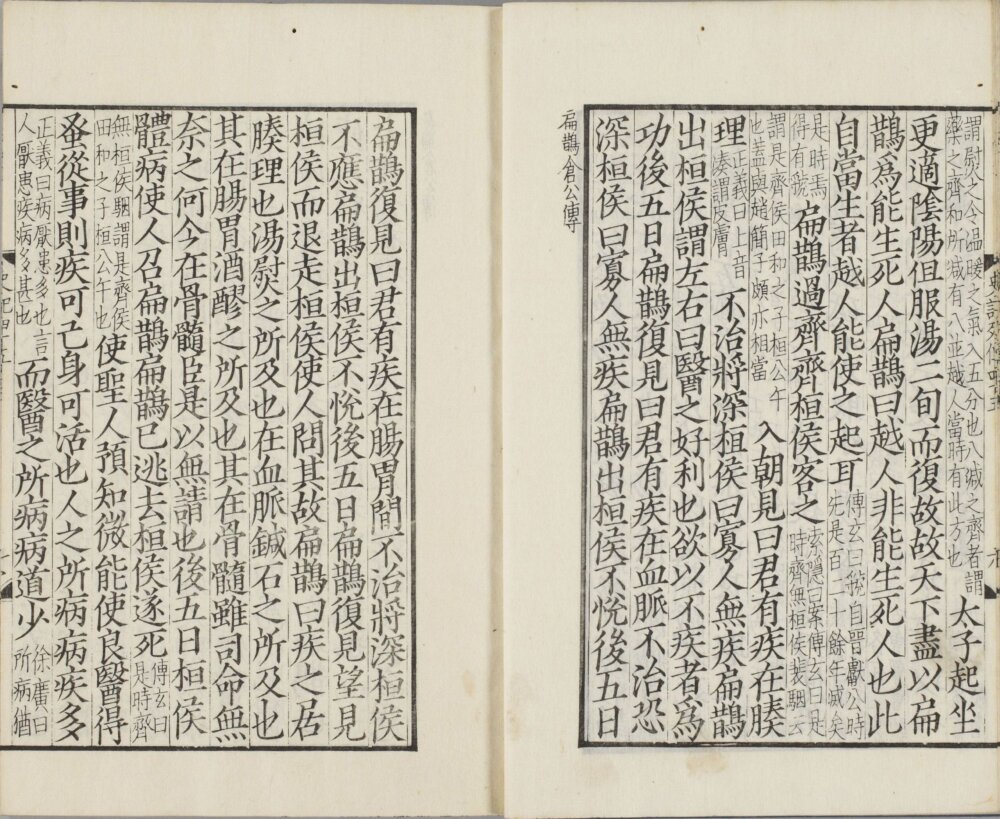 謂熨之令温暖之氣入五分也八減之齊者謂
藥之齊和所減有八並越人當時有此方也
太子起坐
更適陰陽但服湯二旬而復故故天下盡以扁
鵲爲能生死人扁鵲曰越人非能生死人也此
自當生者越人能使之起耳
傳玄曰虢自晉獻公時
先是百二十餘年滅矣
是時焉
得有虢
扁鵲過齊齊桓侯客之
索隱曰案傳玄曰是
時齊無桓侯裴駰云
謂是齊侯田和之子桓公午
也蓋與趙簡子頗亦相當
入朝見曰君有疾在腠
理
正義曰上音
湊謂皮膚
不治將深桓侯曰寡人無疾扁鵲
出桓侯謂左右曰醫之好利也欲以不疾者爲
功後五日扁鵲復見曰君有疾在血脈不治恐
深桓侯曰寡人無疾扁鵲出桓侯不悅後五日
扁鵲倉公傳
扁鵲復見曰君有疾在腸胃間不治將深桓侯
不應扁鵲出桓侯不悅後五日扁鵲復見望見
桓侯而退走桓侯使人問其故扁鵲曰疾之居
腠理也湯熨之所及也在血脈鍼石之所及也
其在腸胃酒醪之所及也其在骨髓雖司命無
奈之何今在骨髓臣是以無請也後五日桓侯
體病使人召扁鵲扁鵲已逃去桓侯遂死
傳玄曰
是時齊
無桓侯駰謂是齊侯
田和之子桓公午也
使聖人預知微能使良醫得
蚤從事則疾可已身可活也人之所病病疾多
正義曰病厭患多也言
人厭患疾病多甚也
而醫之所病病道少
徐廣曰
所病猶